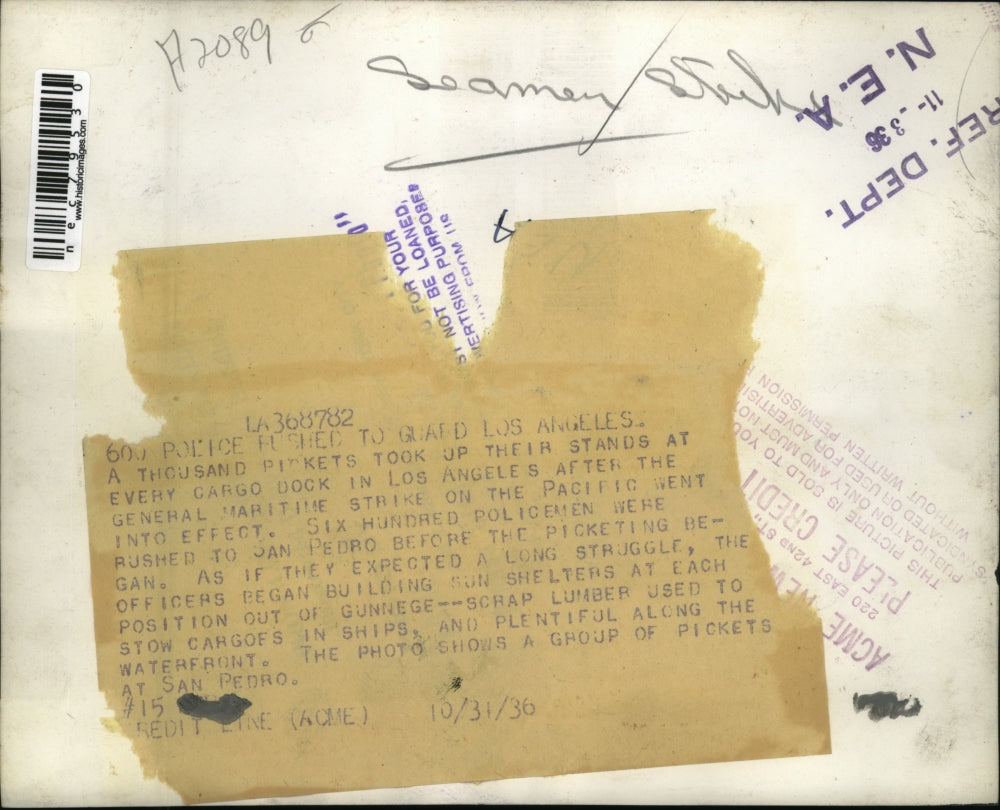 A2089
Seamen / Strike
N. E. A.
11-3 36
REF. DEPT.
necz79530
www.historicimages.com
FOR YOUR
NOT BE LOANED,
VERTISING PURPOSES
LA368782
600 POLICE RUSHED TO GUARD LOS ANGELES.
A THOUSAND PICKETS TOOK UP THEIR STANDS AT
EVERY CARGO DOCK IN LOS ANGELES AFTER THE
GENERAL MARITIME STRIKE ON THE PACIFIC WENT
INTO EFFECT. SIX HUNDRED POLICEMEN WERE
RUSHED TO SAN PEDRO BEFORE THE PICKETING BE-
GAN. AS IF THEY EXPECTED A LONG STRUGGLE, THE
OFFICERS BEGAN BUILDING SUN SHELTERS AT EACH
POSITION OUT OF GUNNEGE--SCRAP LUMBER USED TO
STOW CARGOES IN SHIPS, AND PLENTIFUL ALONG THE
WATERFRONT. THE PHOTO SHOWS A GROUP OF PICKETS
AT SAN PEDRO.
#15
REDIT LINE (ACME) 10/31/36
ACME NEW
220 EAST 42ND ST.,
PLEASE CREDIT
THIS PICTURE IS SOLD TO YOU
PUBLICATION ONLY AND MUST NOT
SYNDICATED OR USED FOR ADVERTISI
WITHOUT WRITTEN PERMISSION